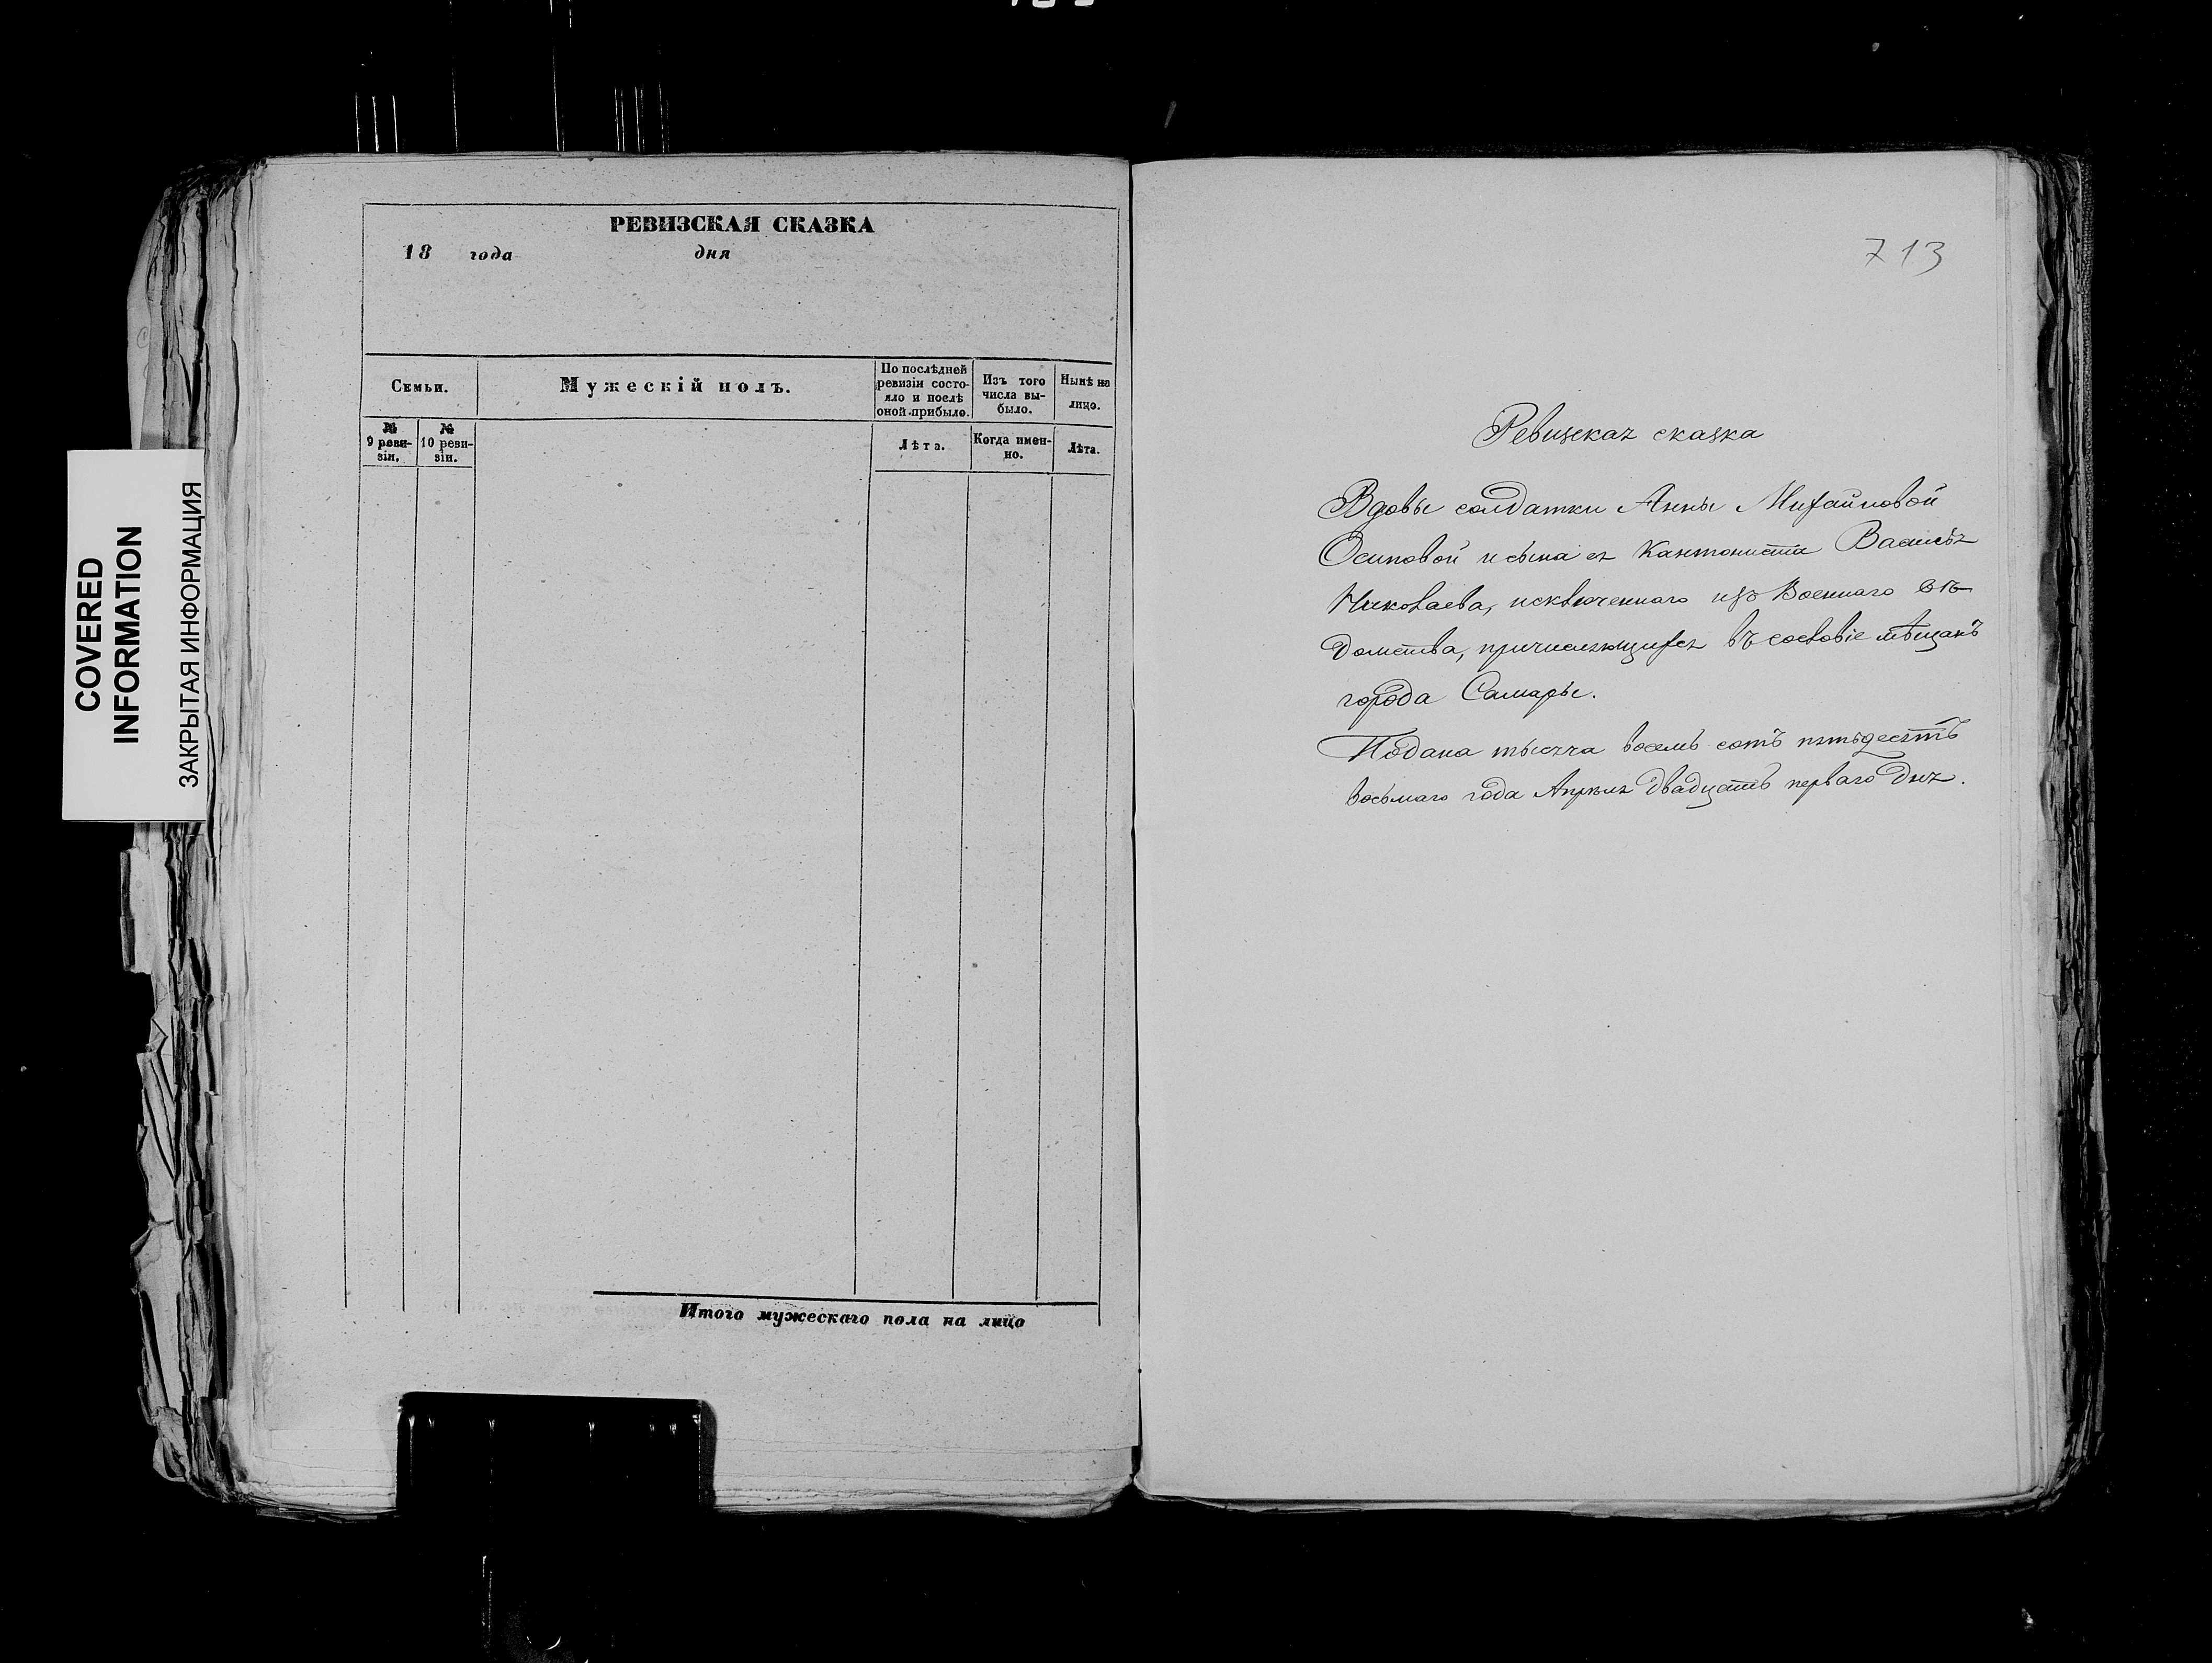 COVERED
INFORMATION
ЗАКРЫТАЯ ИНФОРМАЦИЯ
РЕВИЗСКАЯ СКАЗКА
18 года дня
Семьи.
Мужескій полъ.
По послѣдней
ревизіи состо-
яло и послѣ
оной прибыло.
Изъ того
числа вы-
было.
Нынѣ на
лицо.
№
9 реви-
зіи.
№
10 реви-
зіи.
Лѣта.
Когда имен-
но.
Лѣта.
Итого мужескаго пола на лицо
713
Ревизская сказка
Вдовы солдатки Анны Михайловой
Осиповой и сына ея Кантониста Василья
Николаева, исключеннаго изъ Военнаго вѣ-
домства, причисляющихся въ сословіе мѣщанъ
города Самары.
Подана тысяча восемь сотъ пятьдесятъ
восьмаго года Апрѣля двадцать перваго дня.